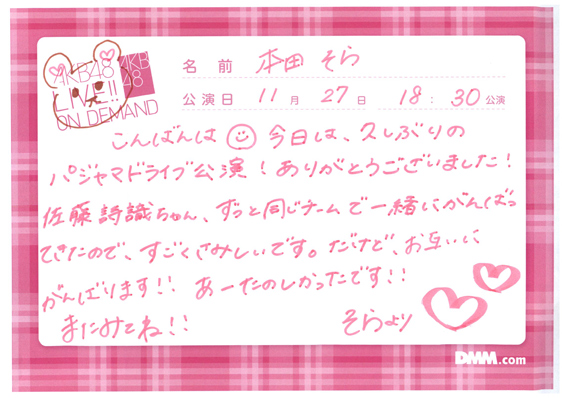 AKB48
LIVE!!
ON DEMAND
AKB
48
名前 本田 そら
公演日 11月 27日 18:30公演
こんばんは 今日は、久しぶりの
パジャマドライブ公演!ありがとうございました!
佐藤詩識ちゃん、ずっと同じチームで一緒にがんばっ
てきたので、すごくさみしいです。だけど、お互いに
がんばります!! あーたのしかったです!!
またみてね!! そらより
DMM.com